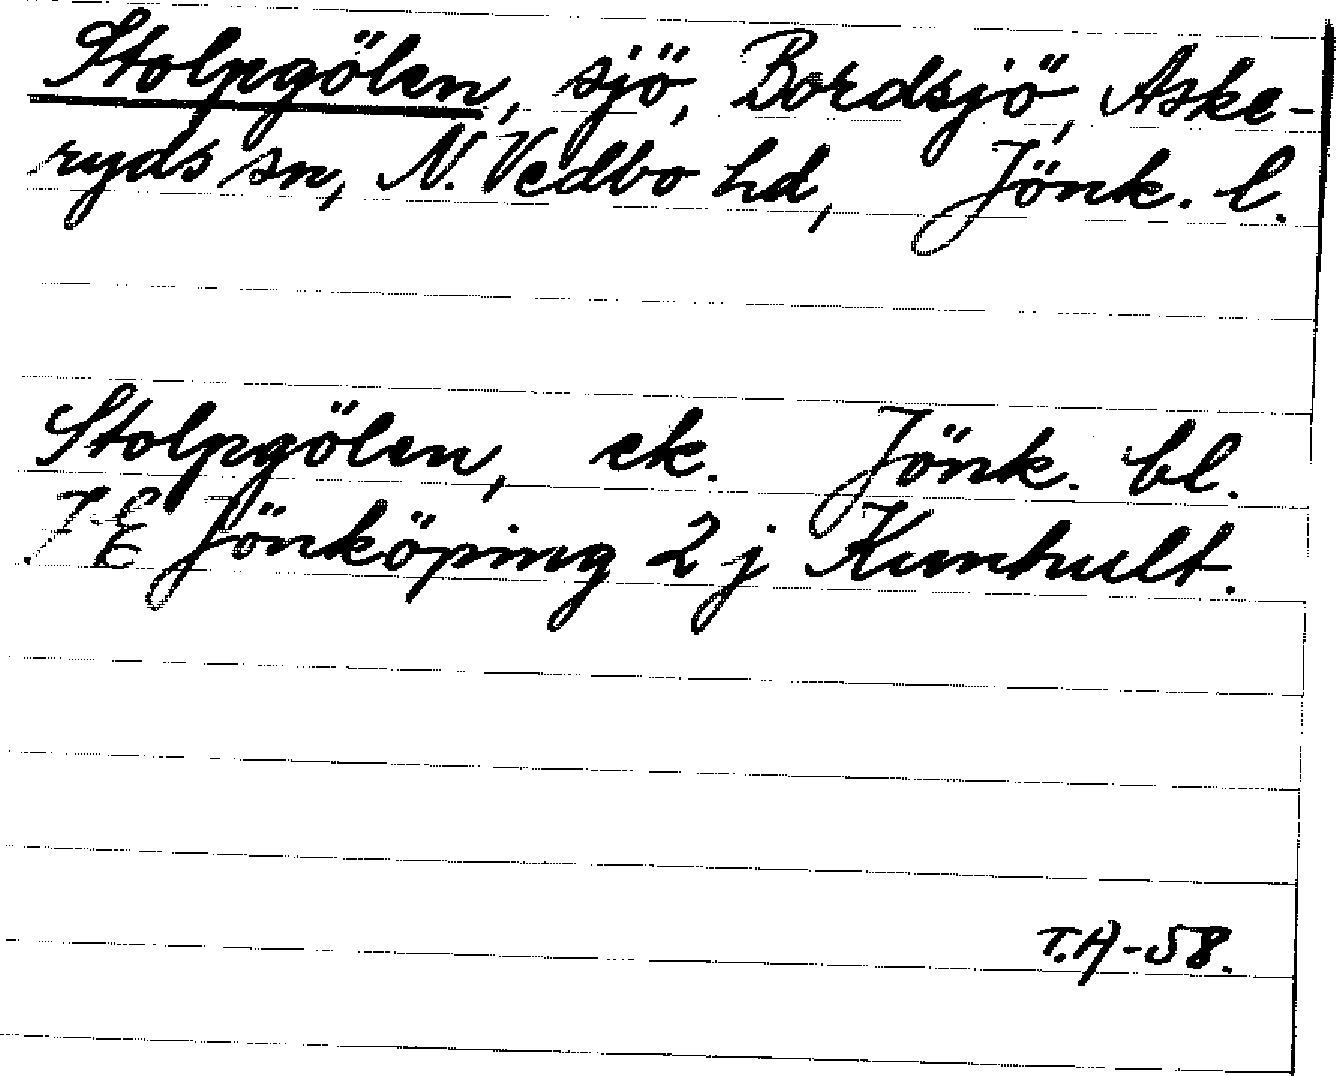 Stolpgölen, sjö, Bordsjö, Aske-
ryds sn, N. Vedbo hd, Jönk. l.
Stolpgölen, ek. Jönk. bl.
7E Jönköping 2 j Kunhult.
T.A-58.